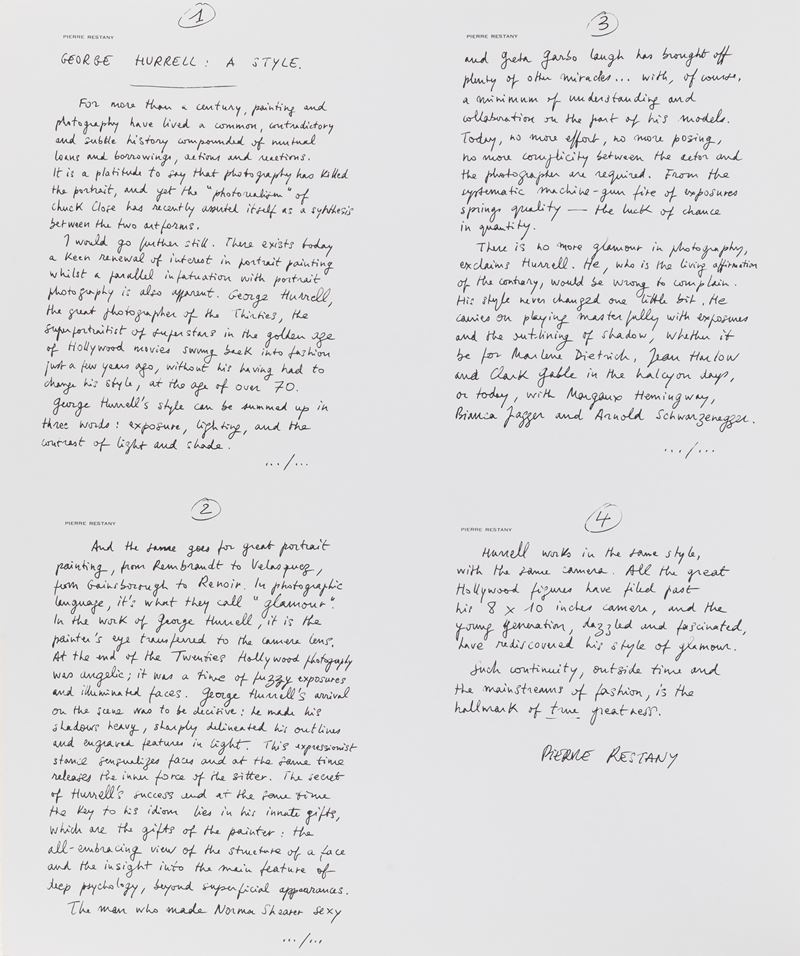 1
PIERRE RESTANY
GEORGE HURRELL : A STYLE.
For more than a century, painting and
photography have lived a common, contradictory
and subtle history compounded of mutual
loans and borrowings, actions and reactions.
It is a platitude to say that photography has killed
the portrait, and yet the "photorealism" of
Chuck Close has recently asserted itself as a synthesis
between the two artforms.
I would go further still. There exists today
a keen renewal of interest in portrait painting
whilst a parallel infatuation with portrait
photography is also apparent. George Hurrell,
the great photographer of the Thirties, the
superportraitist of superstars in the golden age
of Hollywood movies swung back into fashion
just a few years ago, without his having had to
change his style, at the age of over 70.
George Hurrell's style can be summed up in
three words : exposure, lighting, and the
contrast of light and shade.
.../...
2
PIERRE RESTANY
And the same goes for great portrait
painting, from Rembrandt to Velasquez,
from Gainsborough to Renoir. In photographic
language, it's what they call "glamour".
In the work of George Hurrell, it is the
painter's eye transferred to the camera lens.
At the end of the Twenties Hollywood photography
was angelic; it was a time of fuzzy exposures
and illuminated faces. George Hurrell's arrival
on the scene was to be decisive : he made his
shadows heavy, sharply delineated his outlines
and engraved features in light. This expressionist
stance sensualizes faces and at the same time
releases the inner force of the sitter. The secret
of Hurrell's success and at the same time
the key to his idiom lies in his innate gifts,
which are the gifts of the painter : the
all-embracing view of the structure of a face
and the insight into the main feature of
deep psychology, beyond superficial appearances.
The man who made Norma Shearer sexy
.../...
3
and Greta Garbo laugh has brought off
plenty of other miracles... with, of course,
a minimum of understanding and
collaboration on the part of his models.
Today, no more effort, no more posing,
no more complicity between the actor and
the photographer are required. From the
systematic machine-gun fire of exposures
springs quality — the luck of chance
in quantity.
There is no more glamour in photography,
exclaims Hurrell. He, who is the living affirmation
of the contrary, would be wrong to complain.
His style never changed one little bit. He
carries on playing masterfully with exposures
and the outlining of shadow, whether it
be for Marlene Dietrich, Jean Harlow
and Clark Gable in the halcyon days,
or today, with Margaux Hemingway,
Bianca Jagger and Arnold Schwarzenegger.
.../...
4
PIERRE RESTANY
Hurrell works in the same style,
with the same camera. All the great
Hollywood figures have filed past
his 8 x 10 inches camera, and the
young generation, dazzled and fascinated,
have rediscovered his style of glamour.
Such continuity, outside time and
the mainstreams of fashion, is the
hallmark of true greatness.
PIERRE RESTANY
PIERRE RESTANY